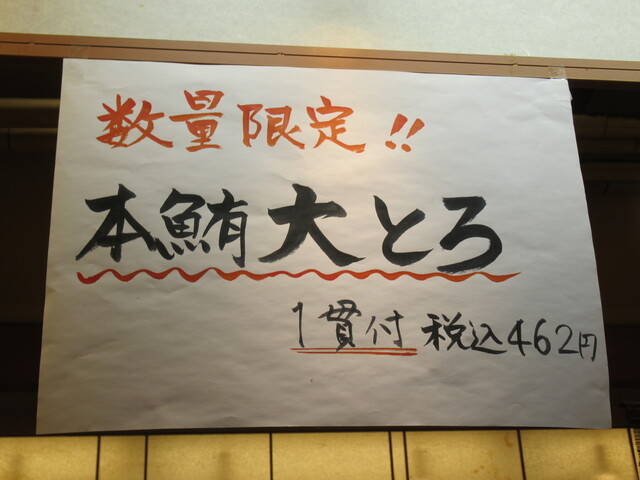 数量限定!!
本鮪大とろ
1貫付 税込462円